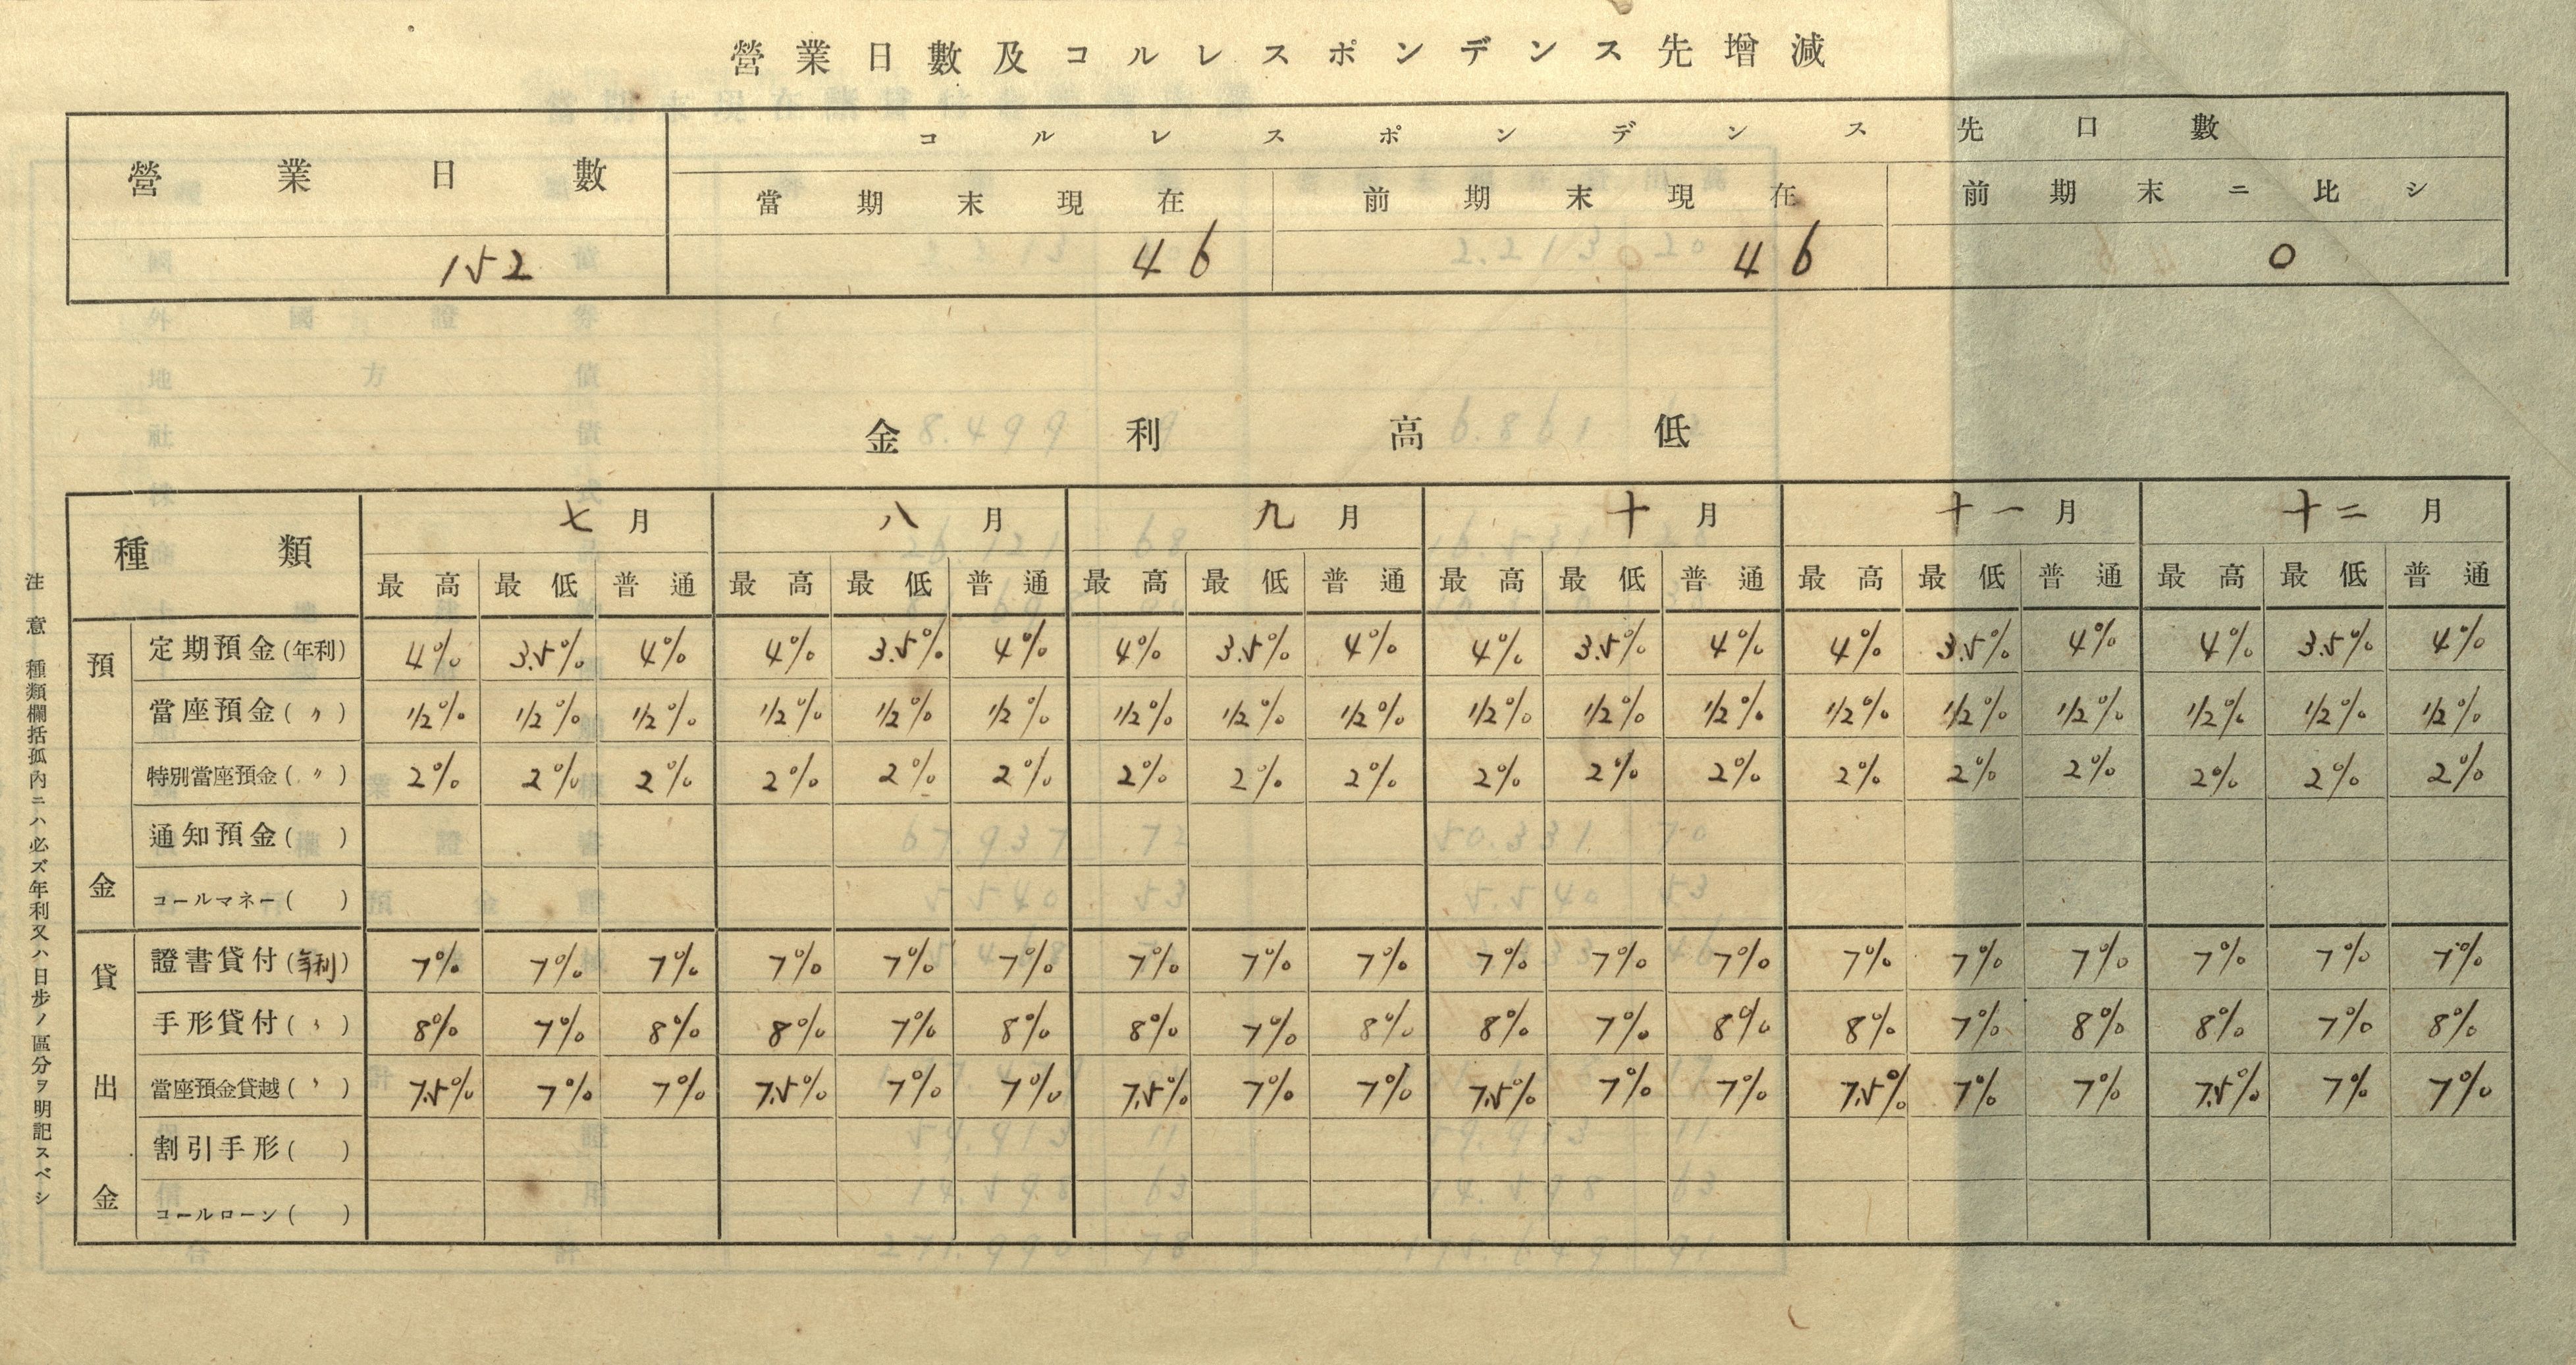 營業日數及コルレスポンデンス先增減
營業日數 コルレスポンデンス先口數
當期末現在 前期末現在 前期末ニ比シ
152 46 46 0
金利高低
種類 七月 八月 九月 十月 十一月 十二月
最高 最低 普通 最高 最低 普通 最高 最低 普通 最高 最低 普通 最高 最低 普通 最高 最低 普通
預金
定期預金(年利) 4% 3.5% 4% 4% 3.5% 4% 4% 3.5% 4% 4% 3.5% 4% 4% 3.5% 4% 4% 3.5% 4%
當座預金(〃) 1/2% 1/2% 1/2% 1/2% 1/2% 1/2% 1/2% 1/2% 1/2% 1/2% 1/2% 1/2% 1/2% 1/2% 1/2% 1/2% 1/2% 1/2%
特別當座預金(〃) 2% 2% 2% 2% 2% 2% 2% 2% 2% 2% 2% 2% 2% 2% 2% 2% 2% 2%
通知預金( )
コールマネー( )
貸出金
證書貸付(年利) 7% 7% 7% 7% 7% 7% 7% 7% 7% 7% 7% 7% 7% 7% 7% 7% 7% 7%
手形貸付(〃) 8% 7% 8% 8% 7% 8% 8% 7% 8% 8% 7% 8% 8% 7% 8% 8% 7% 8%
當座預金貸越(〃) 7.5% 7% 7% 7.5% 7% 7% 7.5% 7% 7% 7.5% 7% 7% 7.5% 7% 7% 7.5% 7% 7%
割引手形( )
コールローン( )
注意 種類欄括孤內ニハ必ズ年利又ハ日步ノ區分ヲ明記スベシ